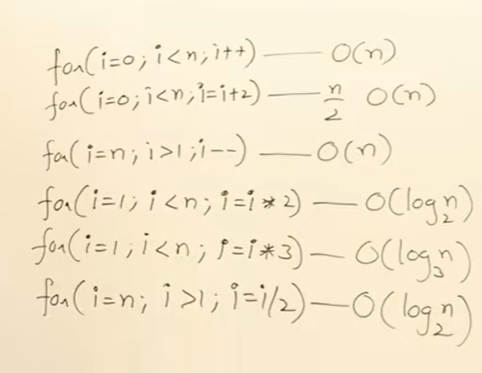 for(i=0; i<n; i++) —— O(n)
for(i=0; i<n; i=i+2) —— n/2 O(n)
for(i=n; i>1; i--) —— O(n)
for(i=1; i<n; i=i*2) — O(log₂n)
for(i=1; i<n; i=i*3) — O(log₃n)
for(i=n; i>1; i=i/2) — O(log₂n)